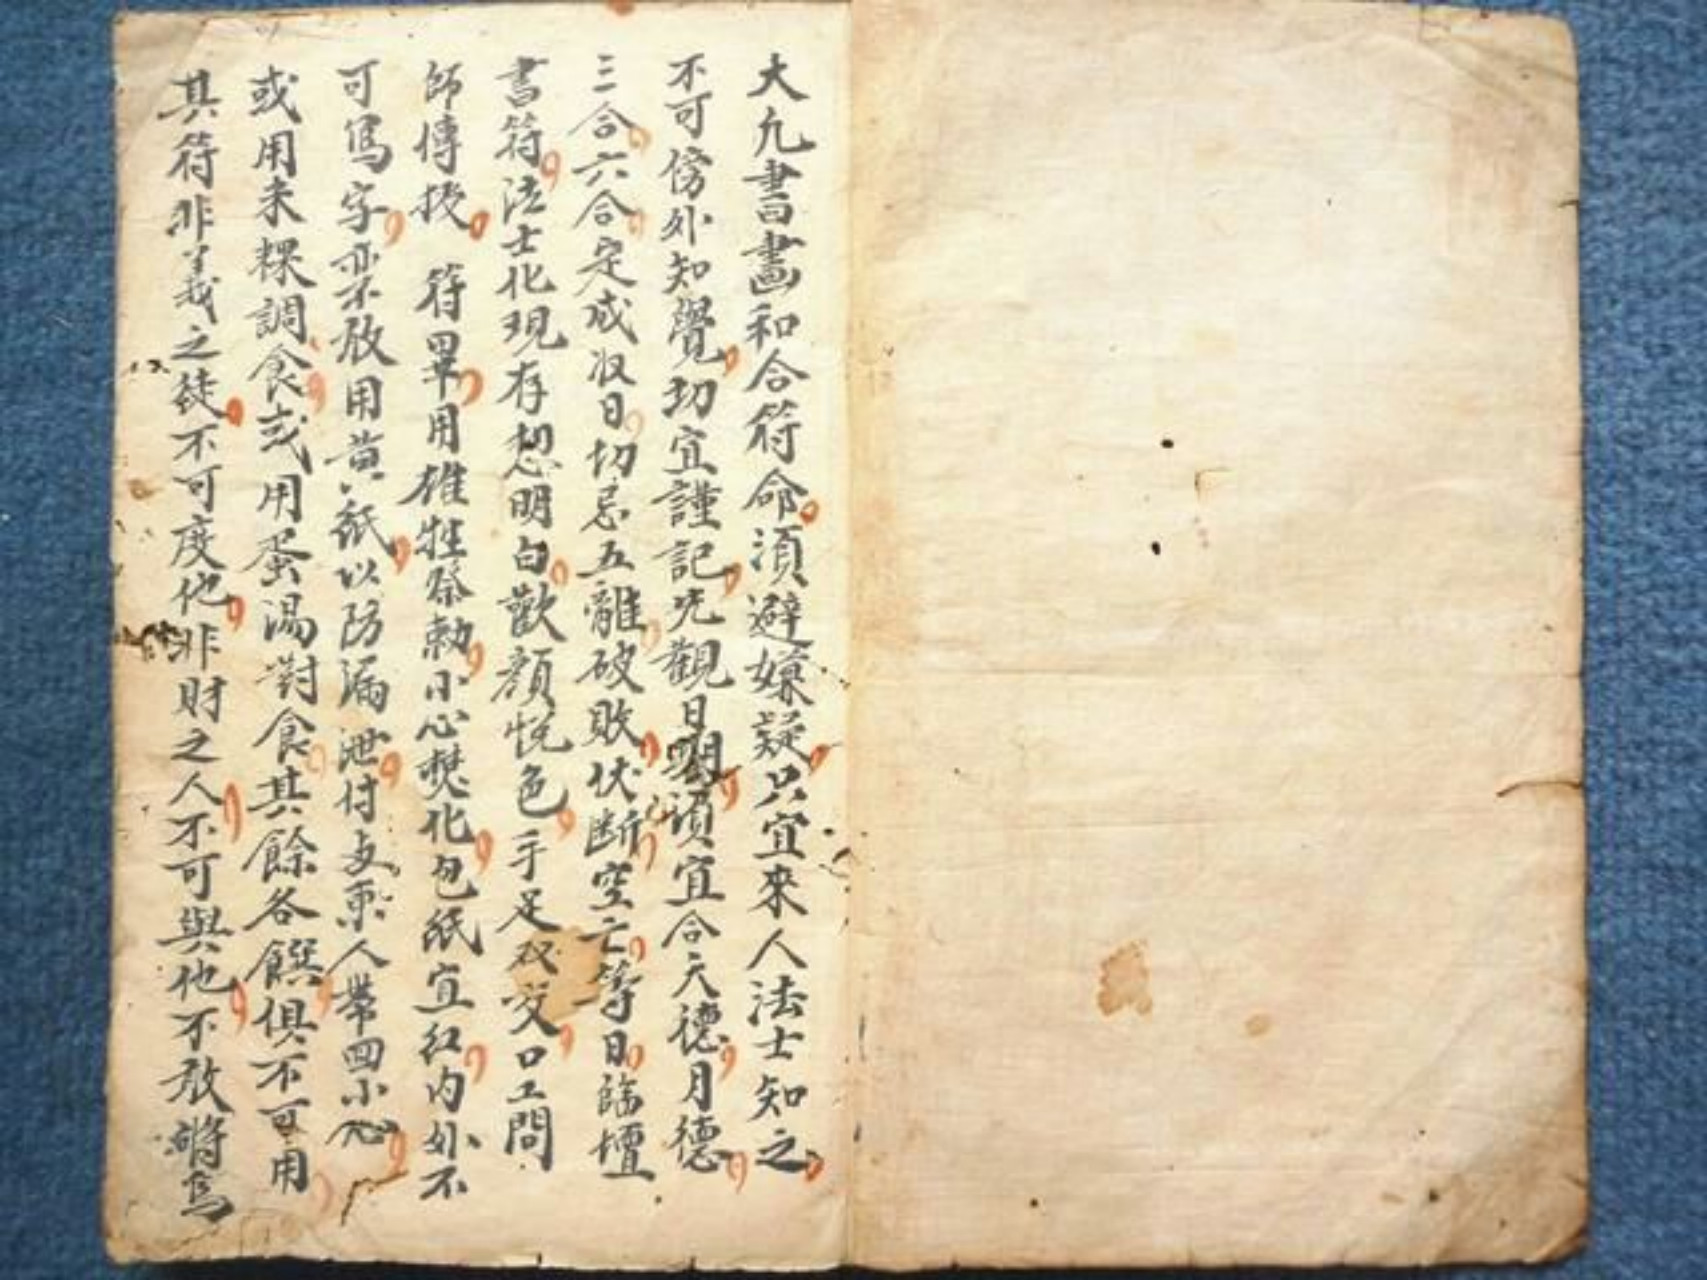 大凢書畫和合符命須避嫌疑只宜來人法士知之
不可傍外知覺切宜謹記先觀日期須宜合天德月德
三合六合定成收日切忌五離破敗伏断空亡等日臨壇
書符法士化現存想明白歡顏悅色手足双交口工問
師傳授 符罩用雄牲祭勅小心焚化包紙宜红内外不
可寫字亦不敢用黄紙以防漏泄付与來人帶回小心
或用米粿調食或用蛋湯對食其餘各饌俱不可用
其符非義之徒不可度他非財之人不可與他不敢